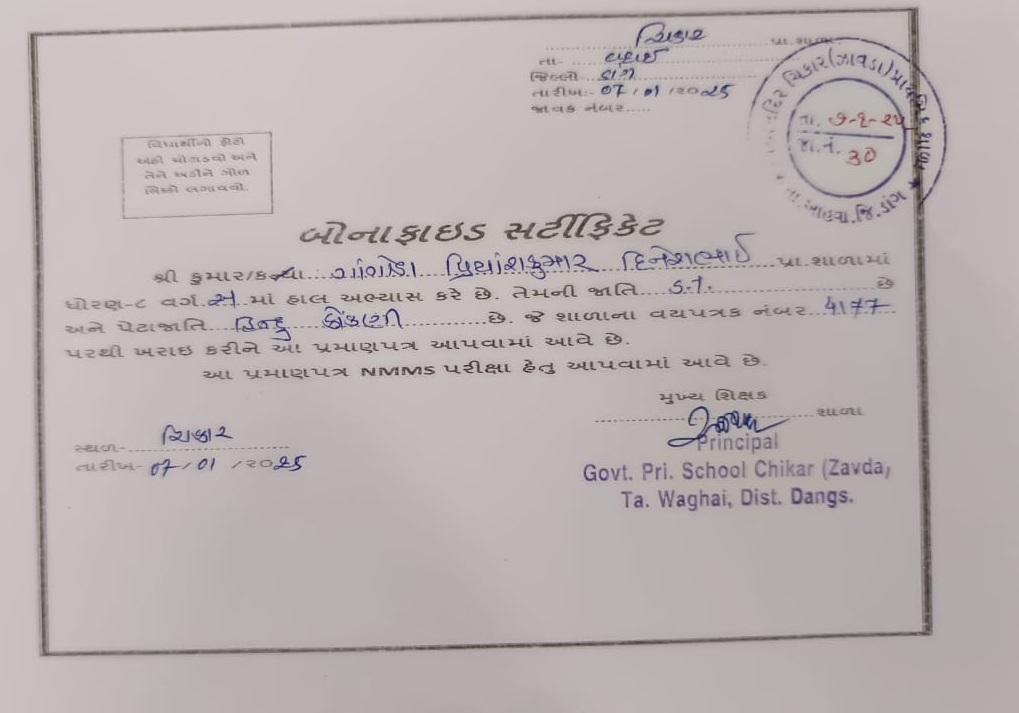 ચિકાર પ્રા.શાળા
તા- વઘઈ
જિલ્લો ડાંગ
તારીખ:- 07/01/2025
જાવક નંબર.....
ચિકાર(ઝાવડા)પ્રાથમિક શાળા ★ તા.આહવા.જિ.ડાંગ ★
તા. ૭-૧-૨૫
જા.નં. 30
વિદ્યાર્થીનો ફોટો
અહીં ચોંટાડવો અને
તેને અડીને ગોળ
સિક્કો લગાવવો.
બોનાફાઇડ સર્ટીફિકેટ
શ્રી કુમાર/કન્યા.. ગાંગોડા પ્રિયાંશકુમાર દિનેશભાઈ પ્રા.શાળામાં
ધોરણ-૮ વર્ગ.અ.માં હાલ અભ્યાસ કરે છે. તેમની જાતિ S.T. છે
અને પેટાજાતિ હિન્દુ કોંકણી છે. જે શાળાના વયપત્રક નંબર 4177
પરથી ખરાઇ કરીને આ પ્રમાણપત્ર આપવામાં આવે છે.
આ પ્રમાણપત્ર NMMS પરીક્ષા હેતુ આપવામાં આવે છે.
મુખ્ય શિક્ષક
શાળા
Principal
Govt. Pri. School Chikar (Zavda)
Ta. Waghai, Dist. Dangs.
સ્થળ- ચિકાર
તારીખ- 07/01/2025